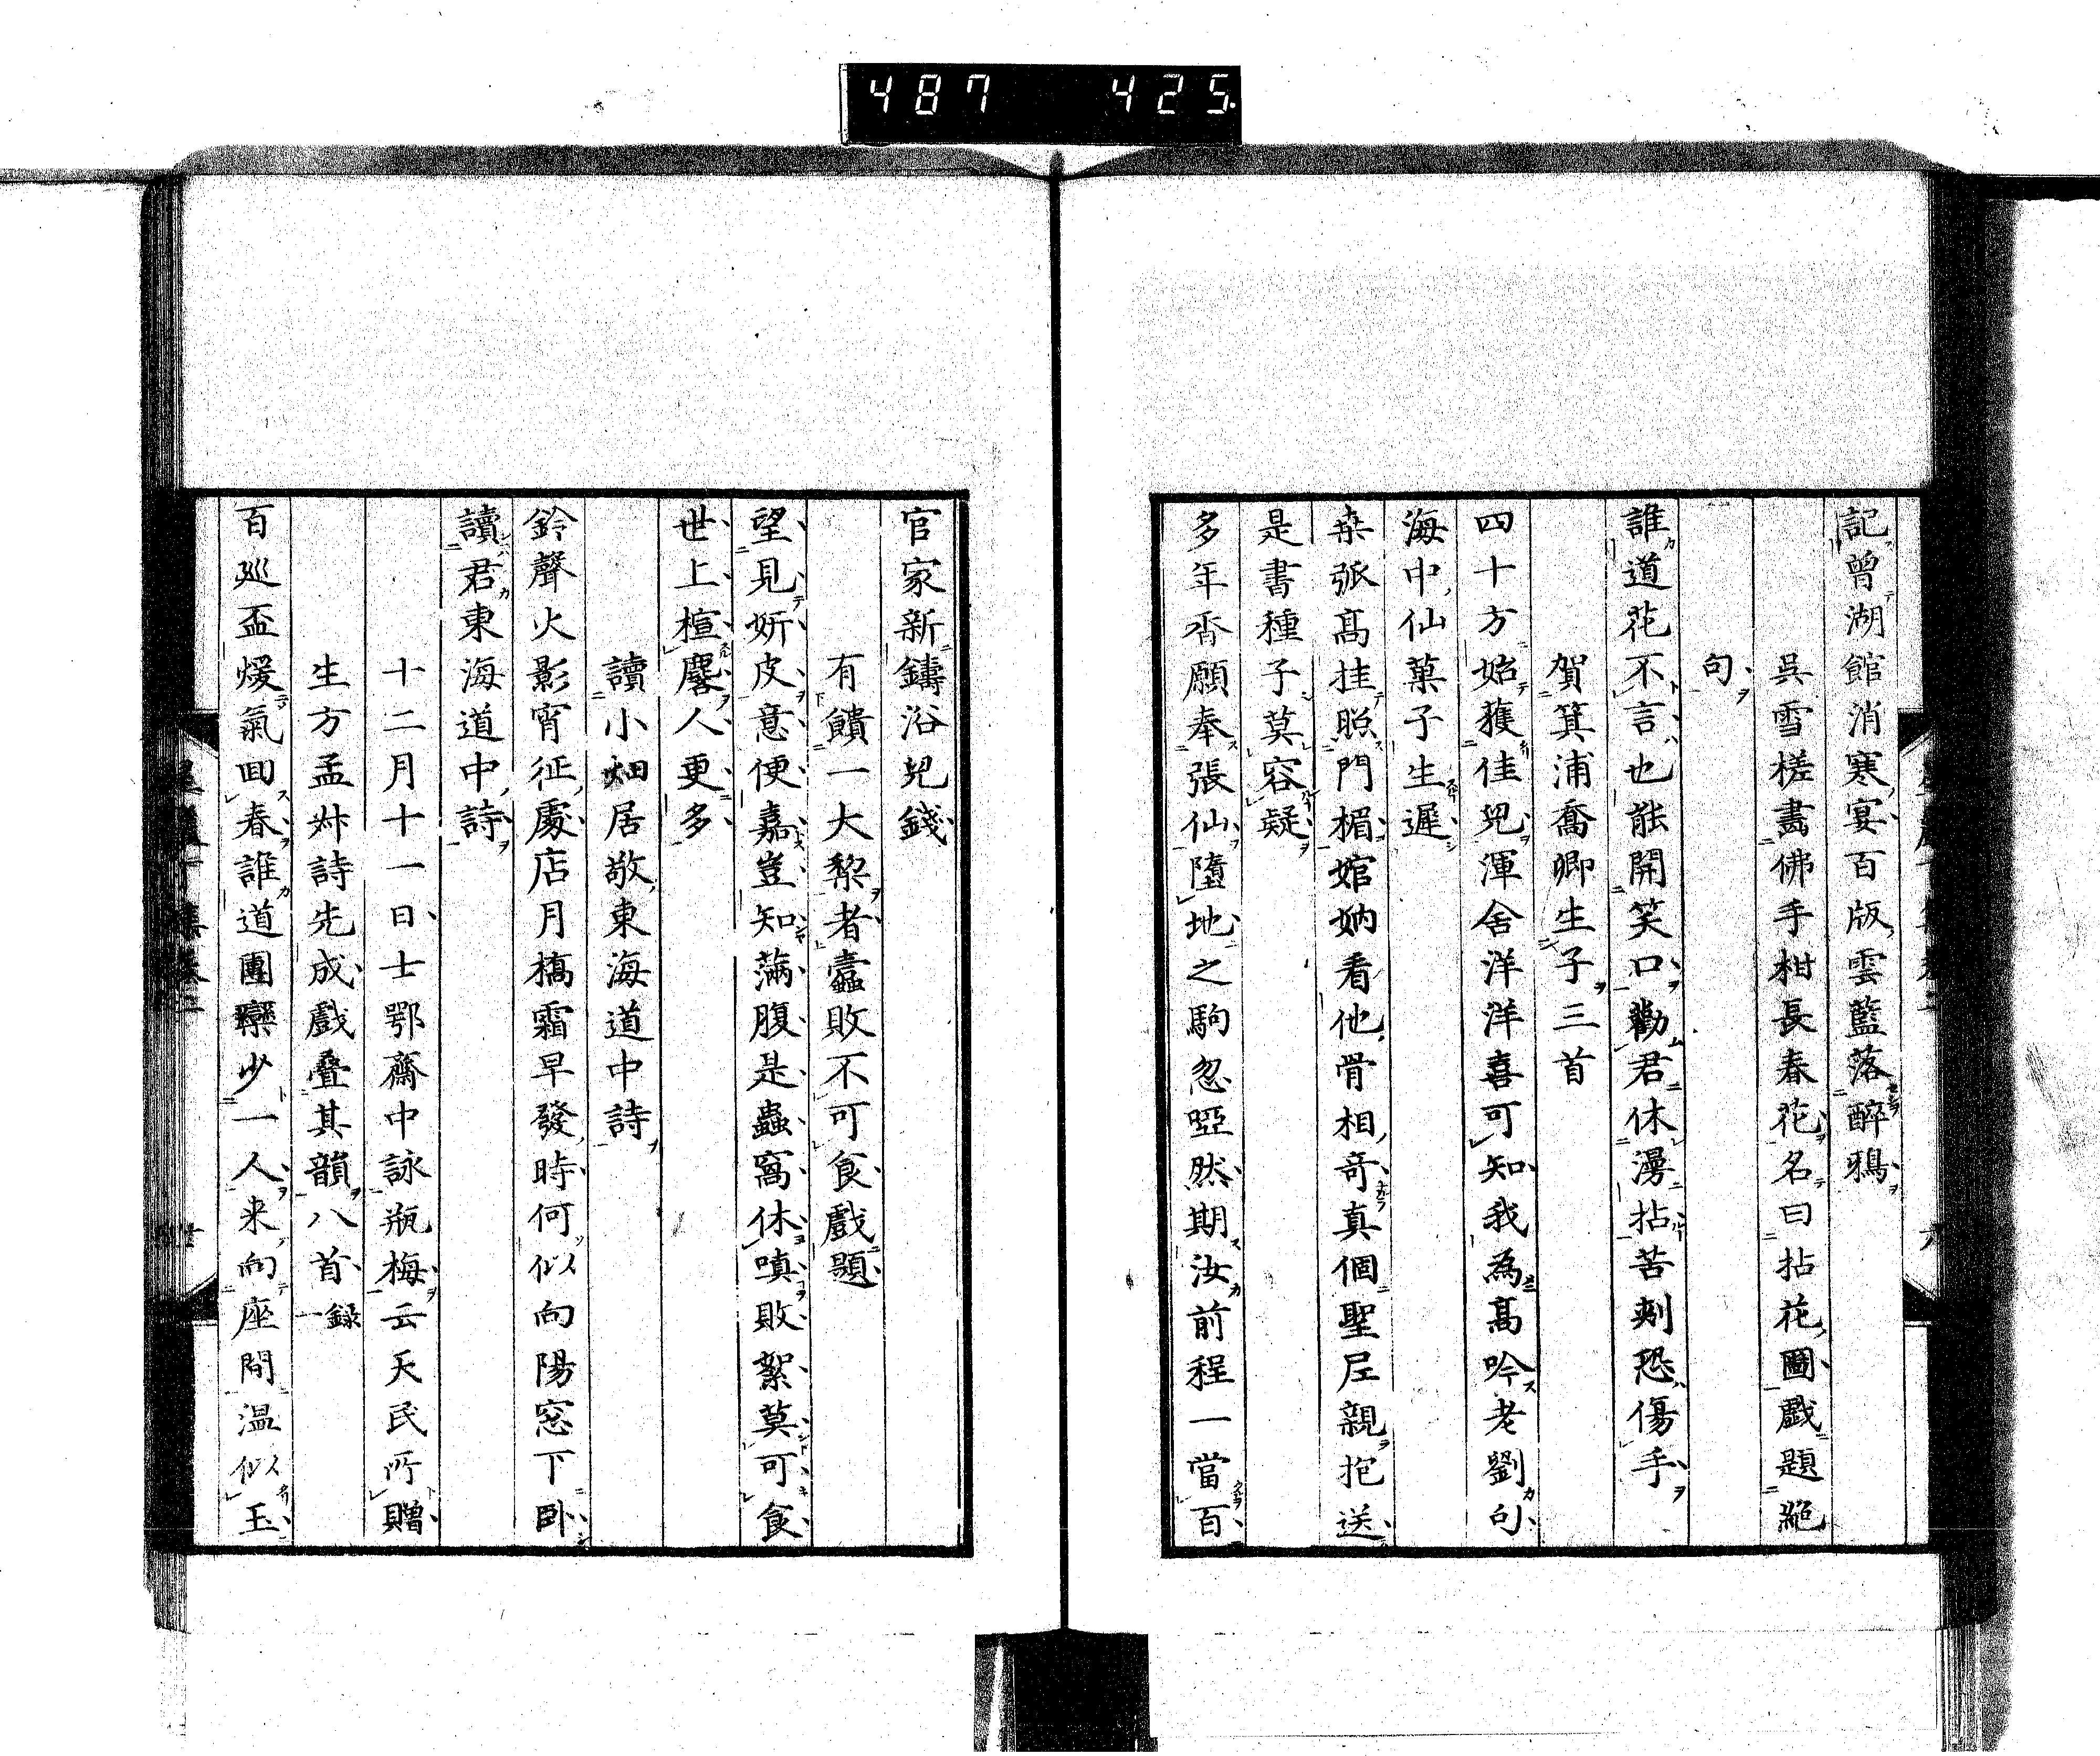 487 425
記曾湖館消寒宴百版雲藍落醉鴉
呉雪槎畵佛手柑長春花名曰拈花圖戲題絕
句
誰道花不言也能開笑口勸君休漫拈苦刺恐傷手
賀箕浦喬卿生子三首
四十方始獲佳兒渾舍洋洋喜可知我為高吟老劉句
海中仙菓子生遲
桒弧高挂照門楣婠妠看他骨相竒真個聖尼親抱送
是書種子莫容疑
多年香願奉張仙墮地之駒忽啞然期汝前程一當百
官家新鑄浴兒錢
有饋一大梨者蠧敗不可食戲題
望見妍皮意便嘉豈知滿腹是蟲窩休嗔敗絮莫可食
世上楦麏人更多
讀小畑居敬東海道中詩
鈴聲火影宵征處店月橋霜早發時何似向陽窓下卧
讀君東海道中詩
十二月十一日士鄂齋中詠瓶梅云天民所贈
生方孟舛詩先成戲疊其韻八首錄一
百巡盃煖氣回春誰道團欒少一人来向座間温似玉